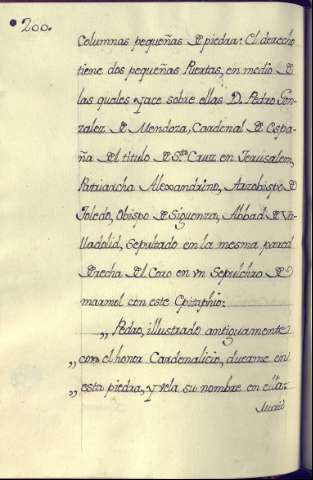 200.
Columnas pequeñas de piedra: El derecho
tiene dos pequeñas Puertas, en medio de
las quales yace sobre ellas D. Pedro Gon-
zalez de Mendoza, Cardenal de Espa-
ña del titulo de Sta. Cruz en Jerusalem,
Patriarcha Alexandrino, Arzobispo de
Toledo, Obispo de Siguenza, Abbad de Va-
lladolid, sepultado en la mesma pared
derecha del Coro en vn Sepulchro de
marmol con este Epitaphio:
„ Pedro, illustrado antiguamente
„ con el honor Cardenalicio, duerme en
„ esta piedra, y vela su nombre en ella:
Murió